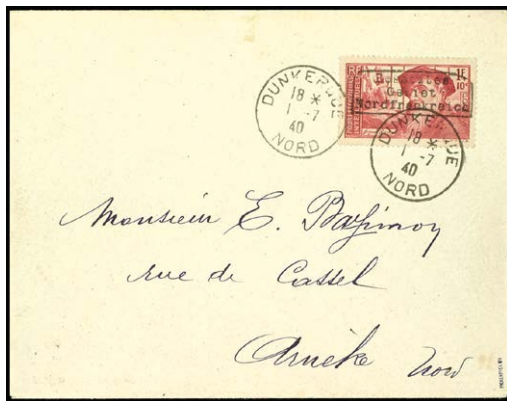 DUNKERQUE
18 *
1 -7
40
NORD
1F
10c
Besetztes
Gebiet
Nordfrankreich
DUNKERQUE
18 *
1 -7
40
NORD
Monsieur E.
rue de Cassel
Arnèke Nord